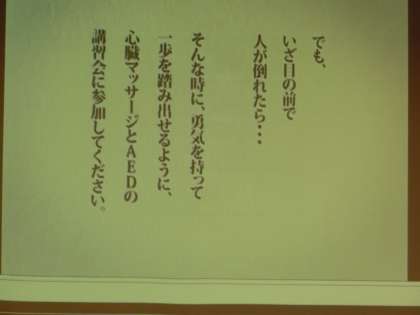 でも、
いざ目の前で
人が倒れたら・・・
そんな時に、勇気を持って
一歩を踏み出せるように、
心臓マッサージとAEDの
講習会に参加してください。